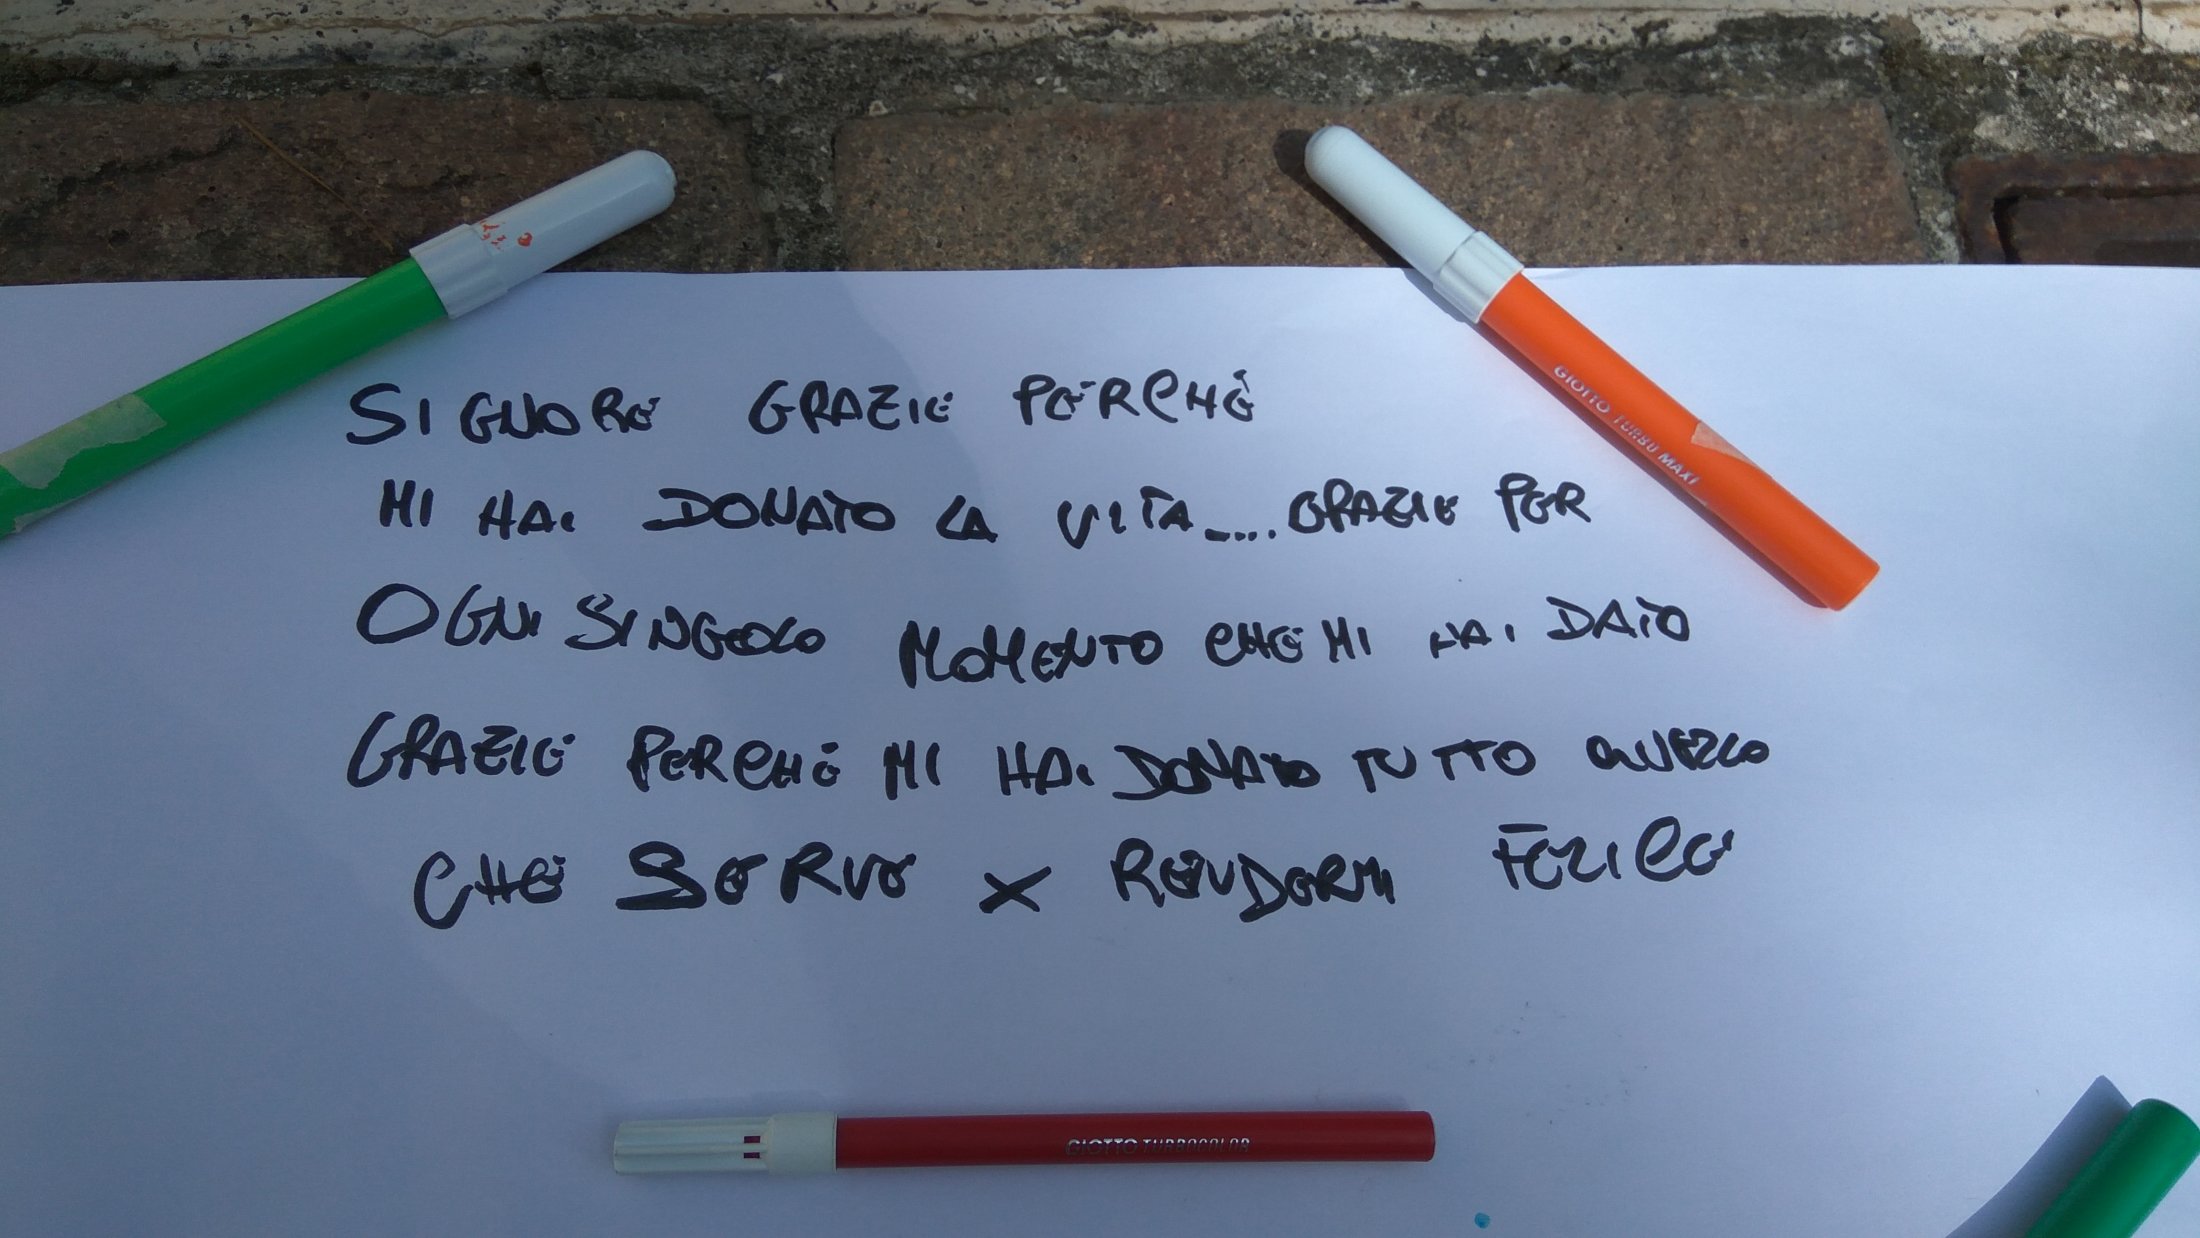 SIGNORE GRAZIE PERCHÈ
MI HAI DONATO LA VITA.... GRAZIE PER
OGNI SINGOLO MOMENTO CHE MI HAI DATO
GRAZIE PERCHÈ MI HAI DONATO TUTTO QUELLO
CHE SERVE X RENDERMI FELICE
GIOTTO TURBO MAXI
GIOTTO TURBOCOLOR